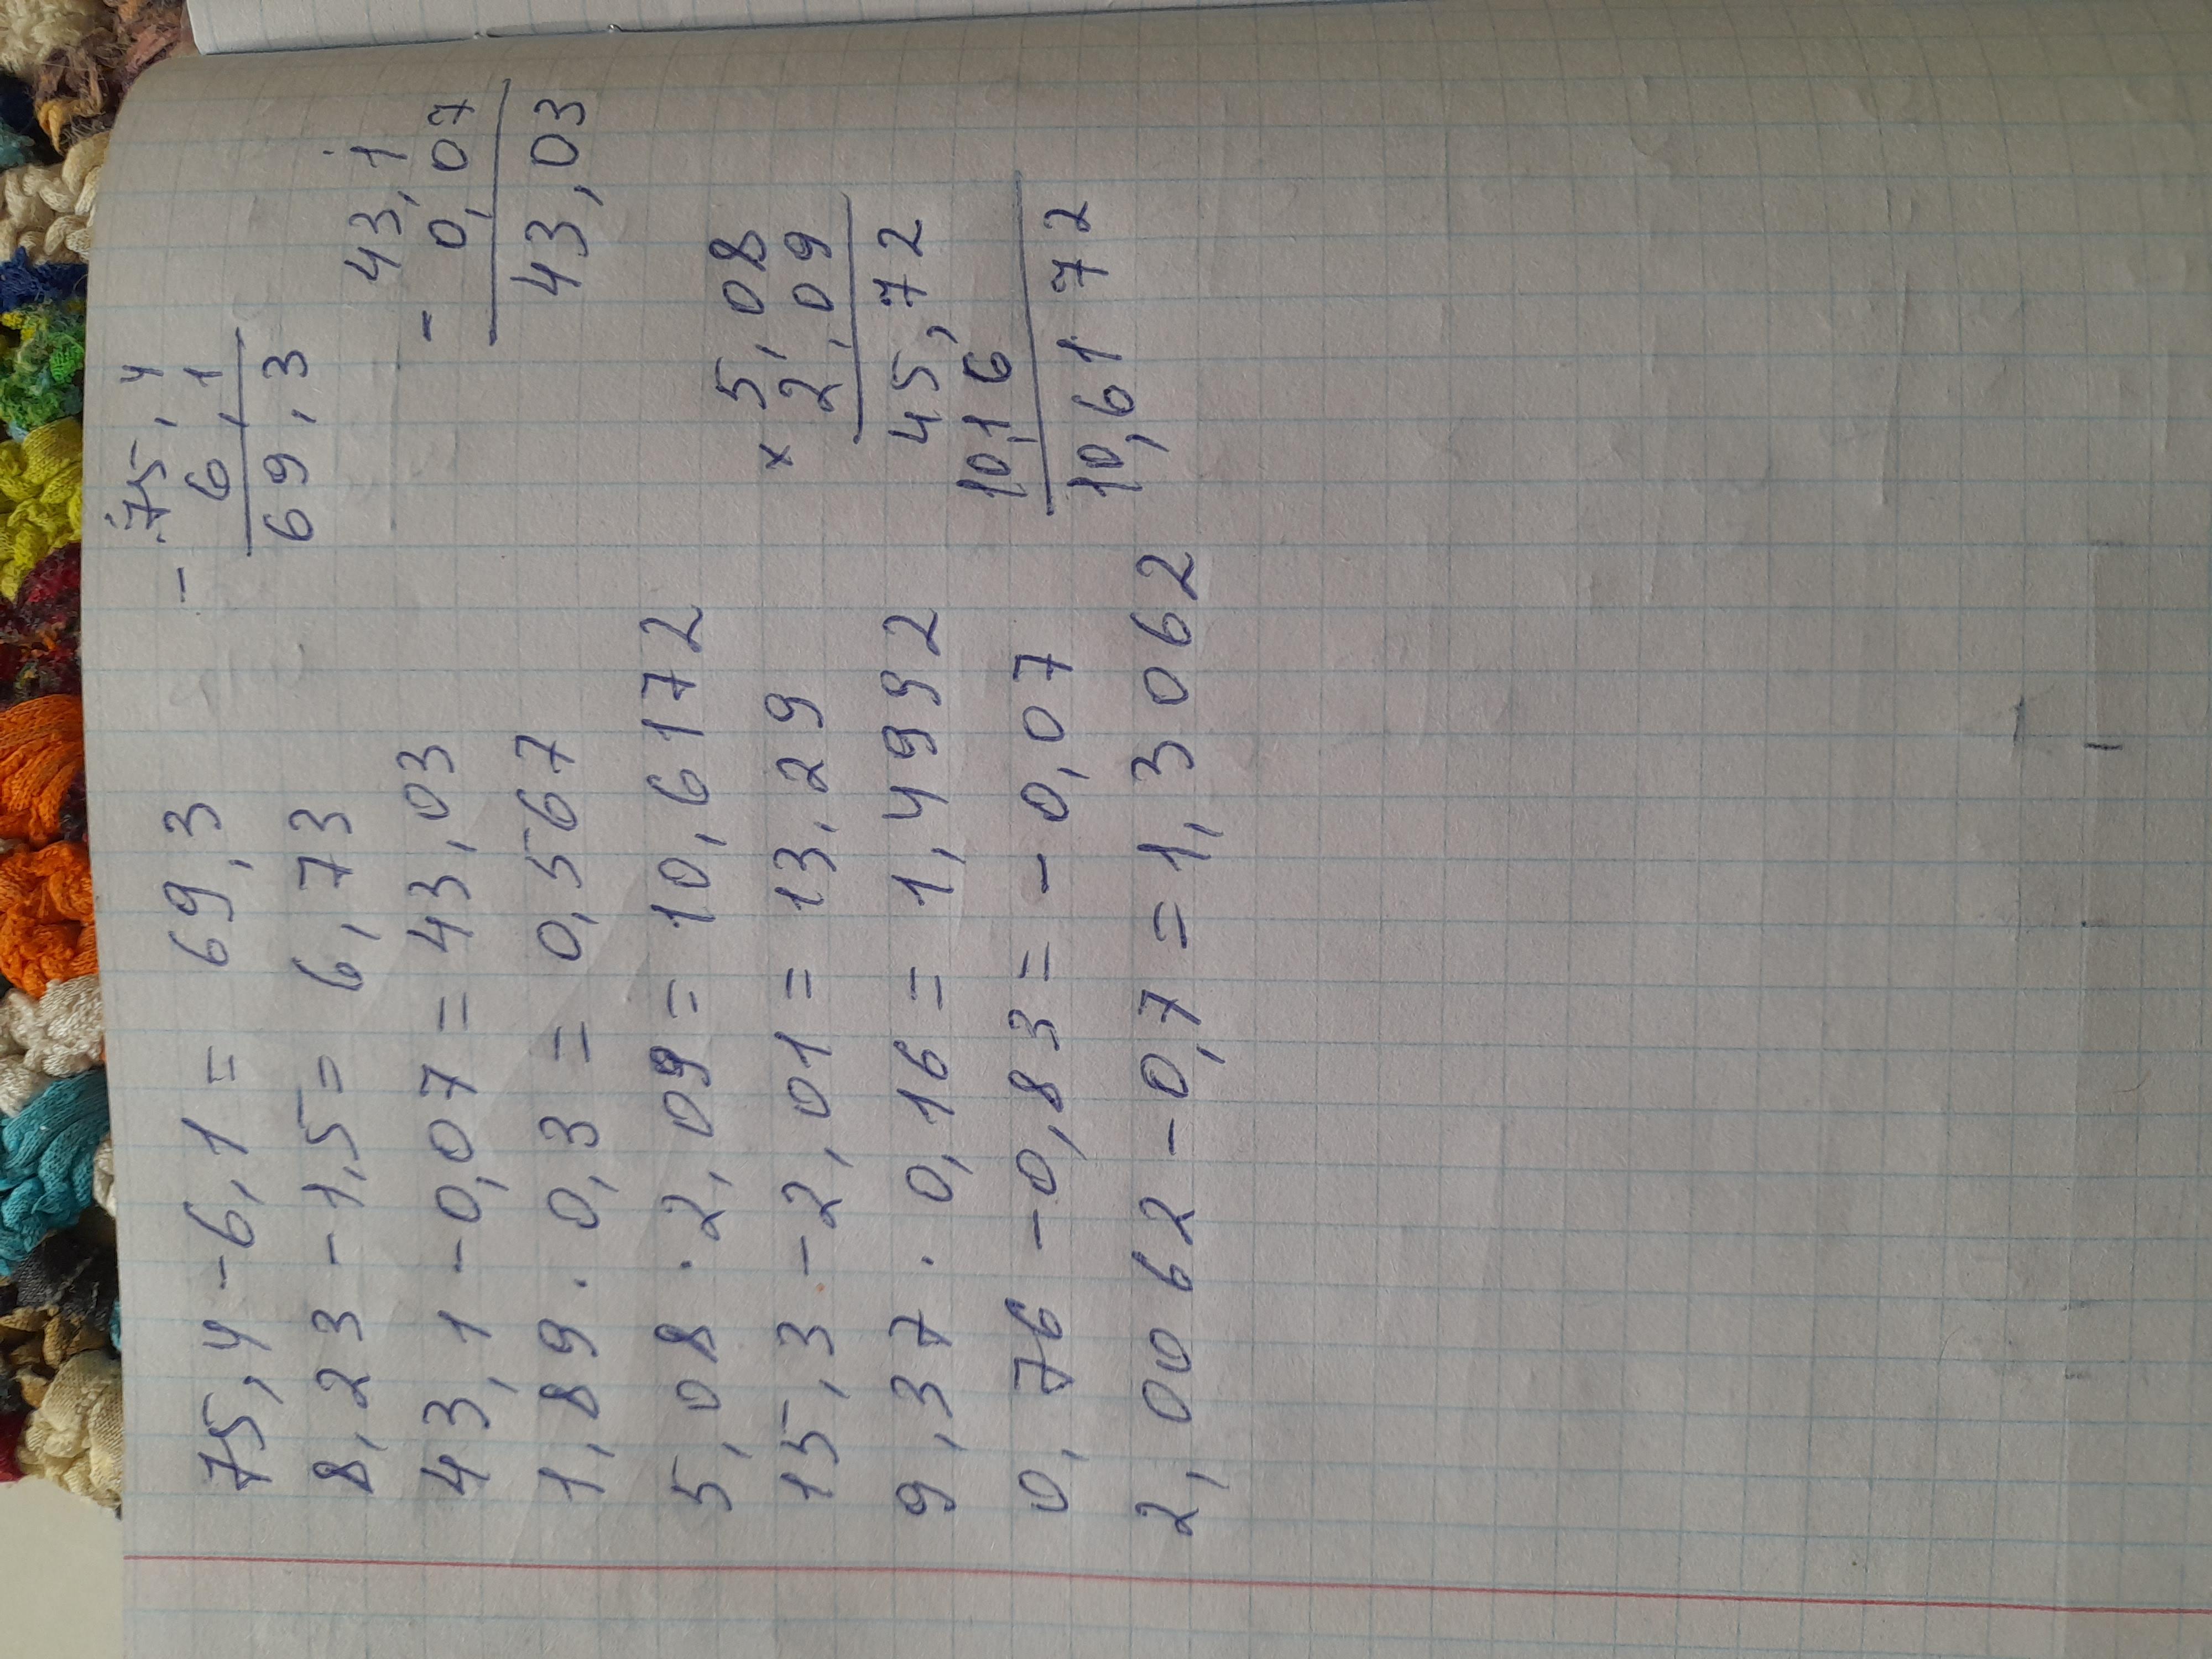 75,4 - 6,1 = 69,3
8,23 - 1,5 = 6,73
43,1 - 0,07 = 43,03
1,89 · 0,3 = 0,567
5,08 · 2,09 = 10,6172
15,3 - 2,01 = 13,29
9,37 · 0,16 = 1,4992
0,76 - 0,83 = - 0,07
2,0062 - 0,7 = 1,3062
- 75,4
6,1
69,3
- 43,1
0,07
43,03
x 5,08
2,09
45,72
10,16
10,6172